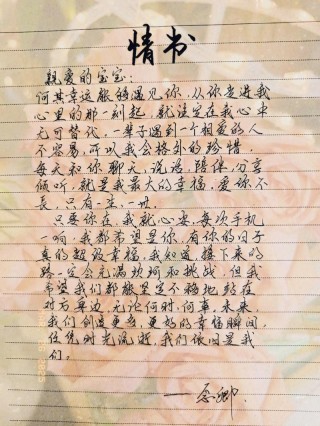 情书
亲爱的宝宝:
何其幸运能够遇见你,从你走进我
心里的那一刻起,就注定在我心中
无可替代,一辈子遇到一个相爱的人
不容易,所以我会格外的珍惜,
每天和你聊天,说话,陪伴,分享
倾听,就是我最大的幸福,爱你不
长,只有一生,一世.
只要你在,我就心安,每次手机
一响,我都希望是你,有你的日子
真的超级幸福,我知道接下来的
路一定会充满坎坷和挑战,但我
希望我们都能坚定不移地站在
对方身边,无论何时,何事,未来
我们创造更多,更好的幸福瞬间,
任凭时光流逝,我们依旧是我
们.
——卿